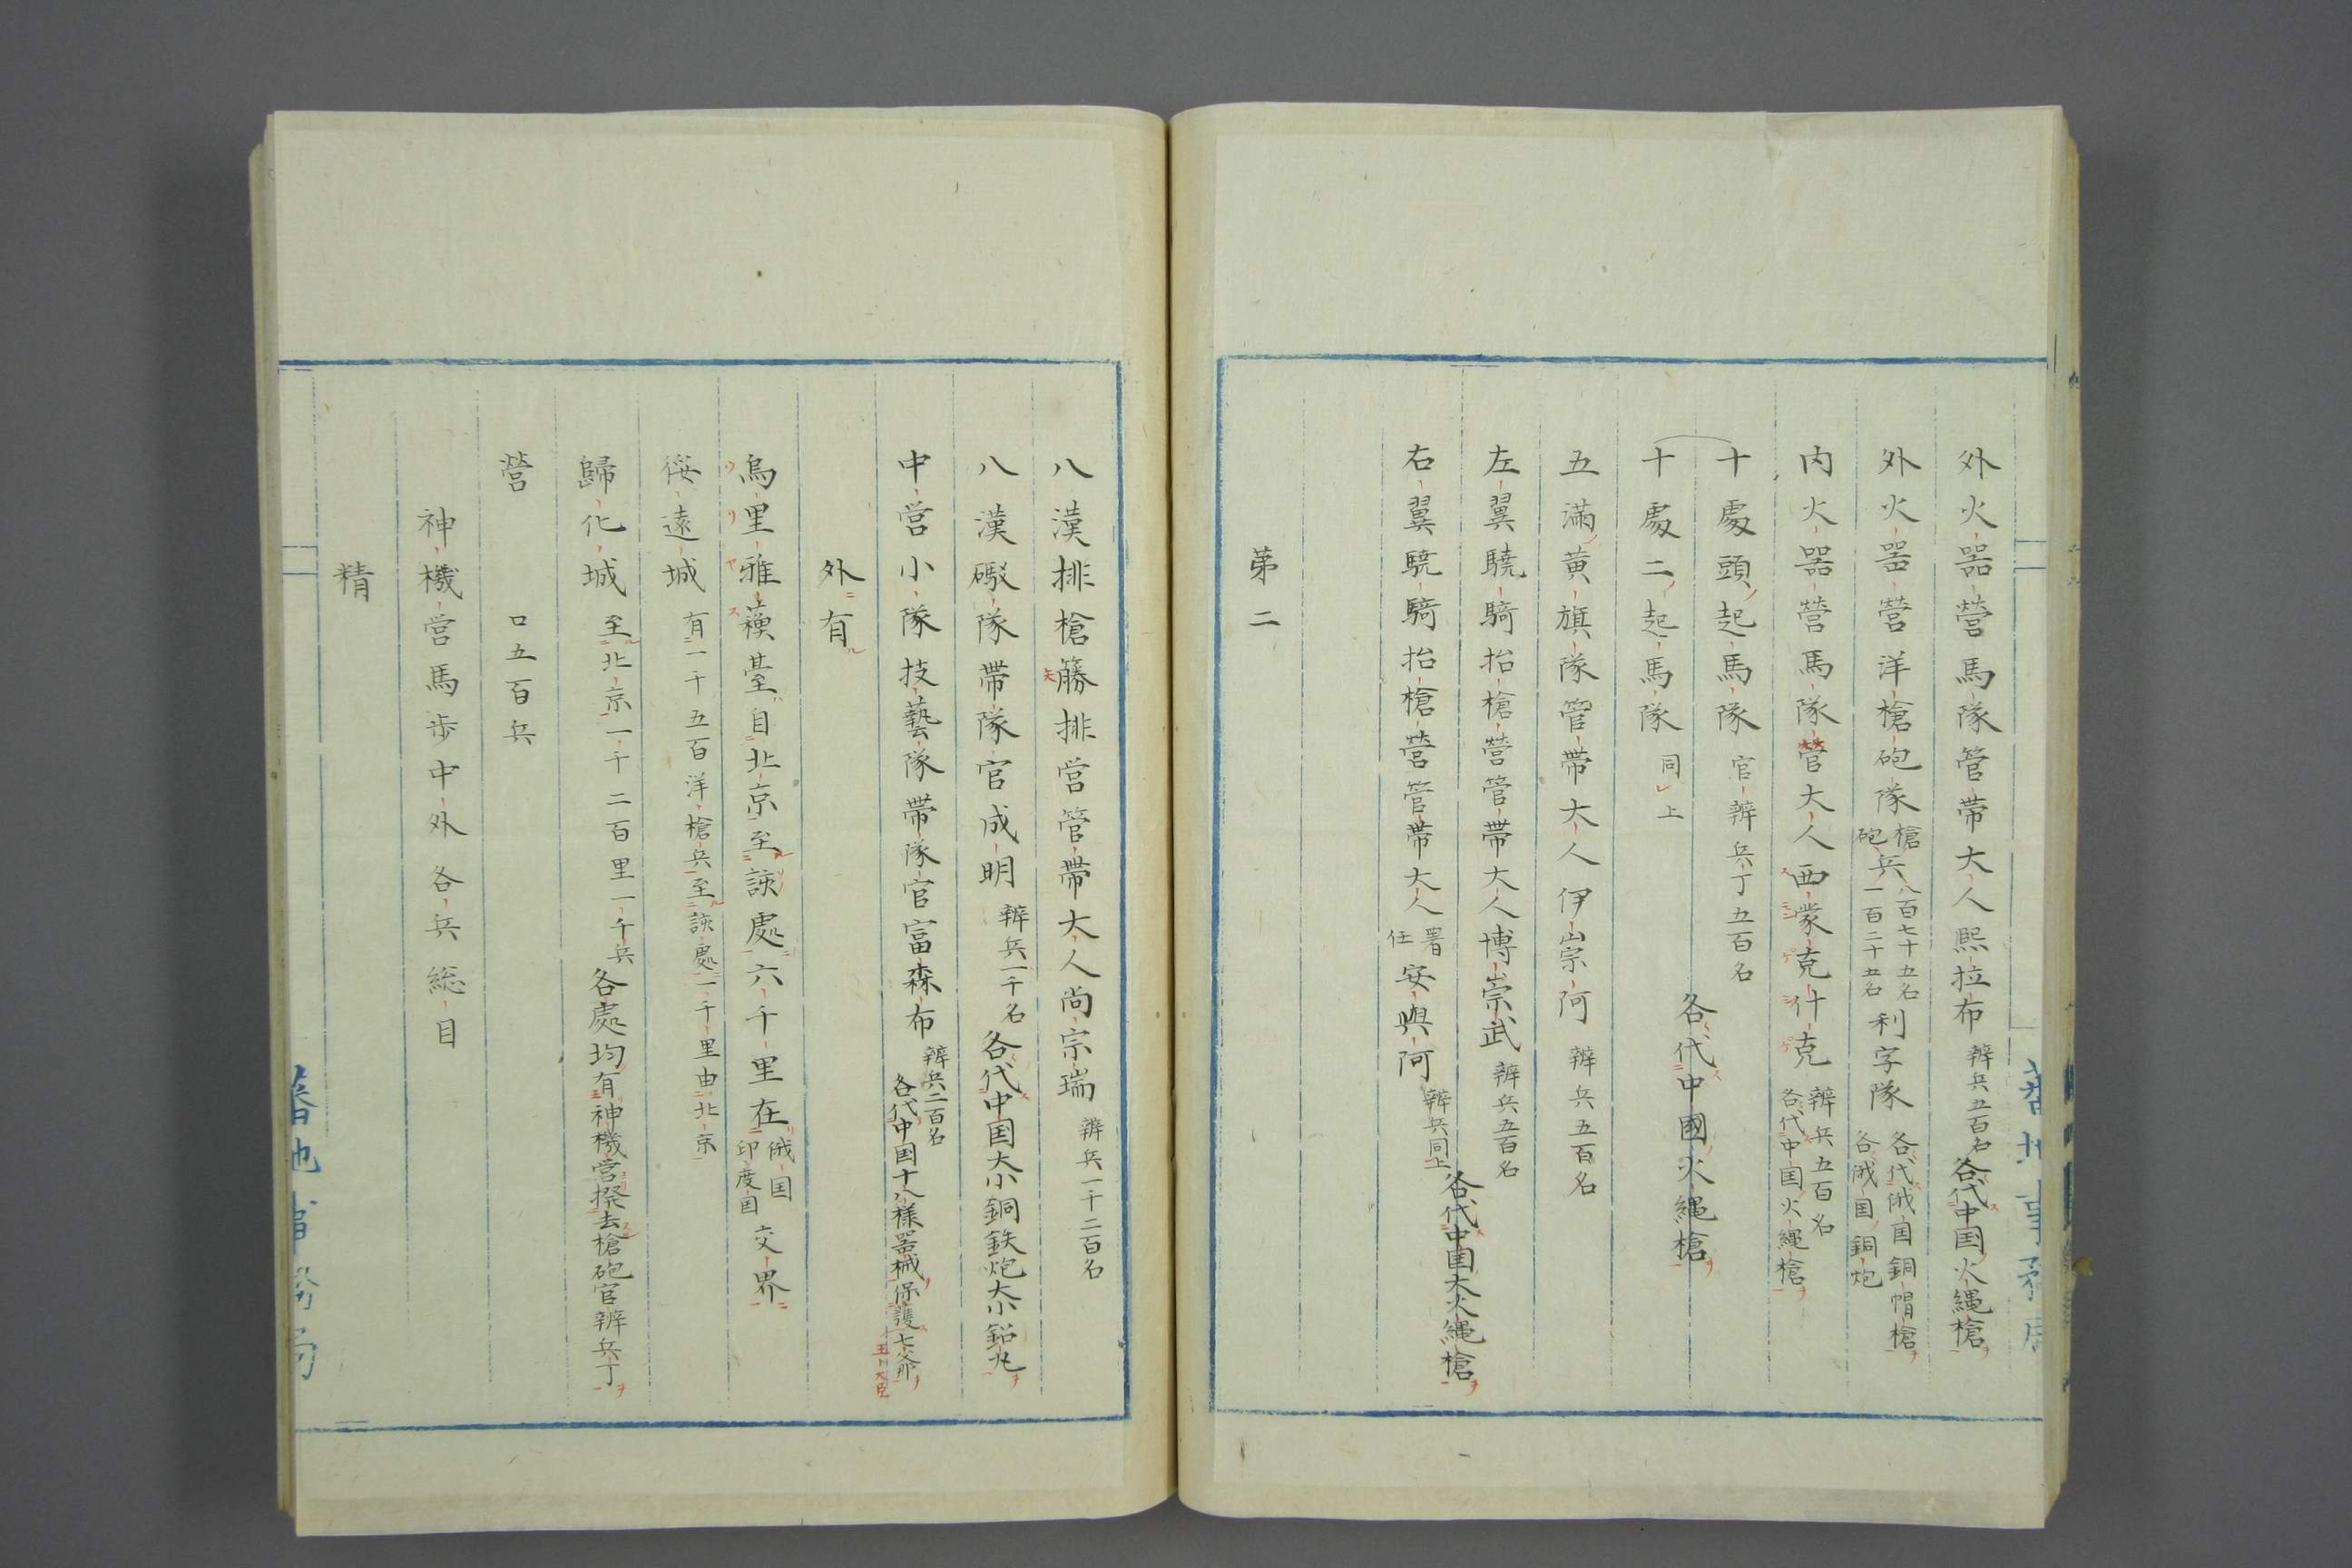 外火器營馬隊管帶大人熙拉布 辨兵五百名 各代中国火縄槍
外火器營洋槍砲隊 槍砲兵 八百七十五名 一百二十五名 利字隊 各代俄国銅帽槍 各俄国銅炮
内火器營馬隊管大人西蒙克什克 辨兵五百名 各代中国火縄槍
十處頭起馬隊 官辨兵丁五百名
各代中國火縄槍
十處二起馬隊 同上
五滿黄旗隊管帶大人伊崇阿 辨兵五百名
左翼驍騎抬槍營管帶大人博崇武 辨兵五百名
各代中国大火縄槍
右翼驍騎抬槍營管帶大人 署任 安興阿 辨兵同上
第二
八漢排槍籐排営管帶大人尚宗瑞 辨兵一千二百名
八漢礮隊帶隊官成明 辨兵一千名 各代中国大小銅鉄炮大小鉛丸
中営小隊技藝隊帶隊官富森布 辨兵二百名 各代中国十八様器械保護七爺 王 大臣
外有
烏里雅蘓臺 自北京至該處六千里在 俄国 印度国 交界
綏遠城 有一千五百洋槍兵至該處一千里由北京
歸化城 至北京一千二百里一千兵 各處均有神機営撥去槍砲官辨兵丁
營 口五百兵
神機営馬歩中外各兵総目
精
蕃地事務局